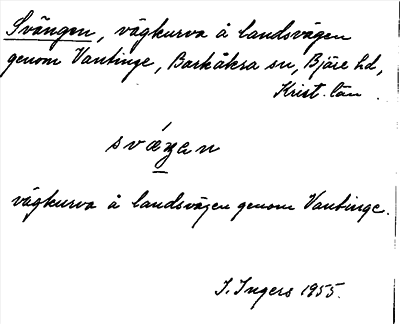 Svängen, vägkurva å landsvägen
genom Vantinge, Barkåkra sn, Bjäre hd,
Krist. län.
sváŋen
vägkurva å landsvägen genom Vantinge.
I. Ingers 1955.